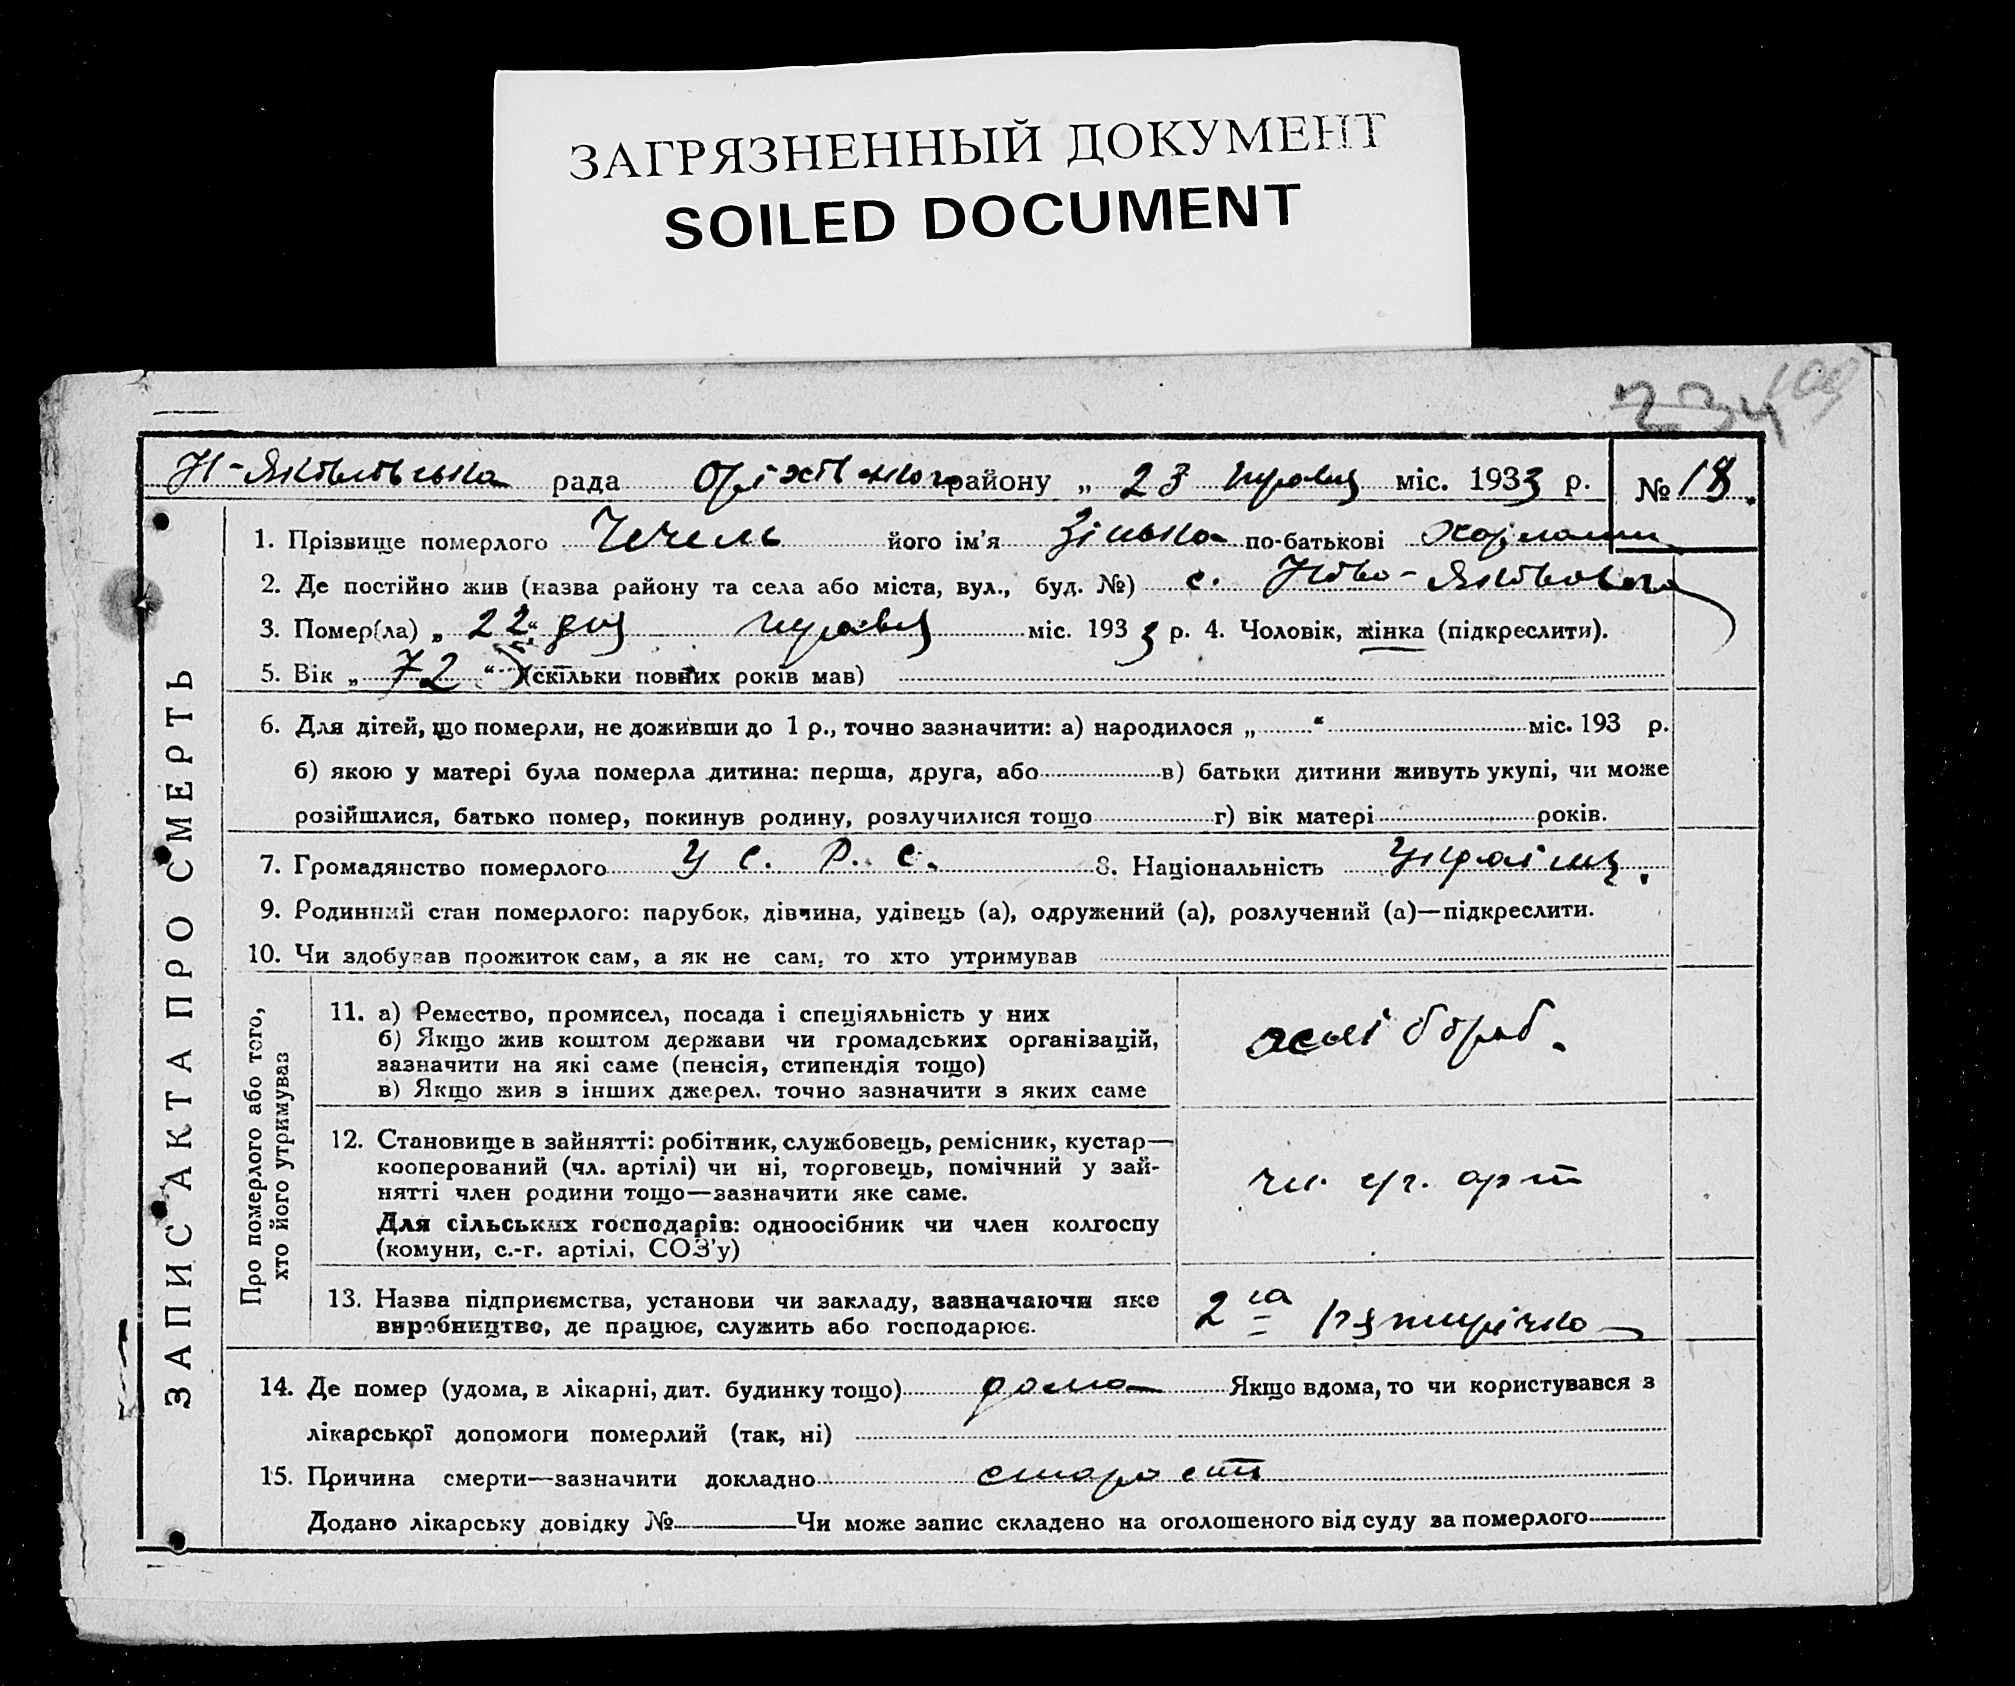 ЗАГРЯЗНЕННЫЙ ДОКУМЕНТ
SOILED DOCUMENT
234
Н-Яковлівська рада Оріхівського району „ 23 травня міс. 1933 р. № 18.
ЗАПИС АКТА ПРО СМЕРТЬ
1. Прізвище померлого Чечель його ім'я Зінька по-батькові
2. Де постійно жив (назва району та села або міста, вул., буд. №) с. Ново-Яковлівка
3. Помер(ла) „ 22 “ дня травня міс. 1933 р. 4. Чоловік, жінка (підкреслити).
5. Вік „ 72 “ (скільки повних років мав)
6. Для дітей, що померли, не доживши до 1 р., точно зазначити: а) народилося „ “ міс. 193 р.
б) якою у матері була померла дитина: перша, друга, або в) батьки дитини живуть укупі, чи може
розійшлися, батько помер, покинув родину, розлучилися тощо г) вік матері років.
7. Громадянство померлого У С. Р. С. 8. Національність Україн.
9. Родинний стан померлого: парубок, дівчина, удівець (а), одружений (а), розлучений (а)—підкреслити.
10. Чи здобував прожиток сам, а як не сам, то хто утримував
Про померлого або того,
хто його утримував
11. а) Ремество, промисел, посада і спеціяльність у них
б) Якщо жив коштом держави чи громадських організацій,
зазначити на які саме (пенсія, стипендія тощо)
в) Якщо жив з інших джерел, точно зазначити з яких саме
12. Становище в зайнятті: робітник, службовець, ремісник, кустар—
кооперований (чл. артілі) чи ні, торговець, помічний у зай-
нятті член родини тощо—зазначити яке саме.
Для сільських господарів: одноосібник чи член колгоспу
(комуни, с.-г. артілі, СОЗ'у)
чл. с/г. арт
13. Назва підприємства, установи чи закладу, зазначаючи яке
виробництво, де працює, служить або господарює.
2га п'ятирічка
14. Де помер (удома, в лікарні, дит. будинку тощо) дома Якщо вдома, то чи користувався з
лікарської допомоги померлий (так, ні)
15. Причина смерти—зазначити докладно старость
Додано лікарську довідку № Чи може запис складено на оголошеного від суду за померлого